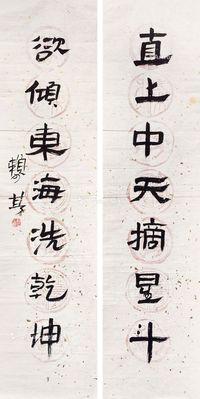 直上中天摘星斗
欲傾東海洗乾坤
賴少其